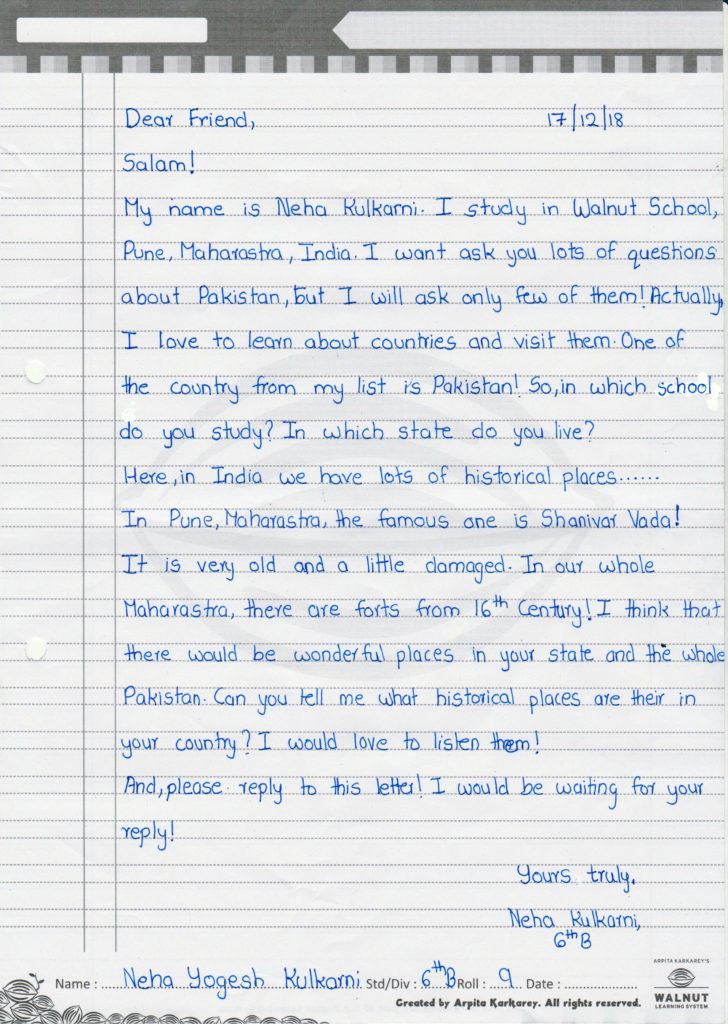 Dear Friend, 17/12/18
Salam!
My name is Neha Kulkarni. I study in Walnut School,
Pune, Maharastra, India. I want ask you lots of questions
about Pakistan, but I will ask only few of them! Actually,
I love to learn about countries and visit them. One of
the country from my list is Pakistan! So, in which school
do you study? In which state do you live?
Here, in India we have lots of historical places......
In Pune, Maharastra, the famous one is Shanivar Vada!
It is very old and a little damaged. In our whole
Maharastra, there are forts from 16th Century! I think that
there would be wonderful places in your state and the whole
Pakistan. Can you tell me what historical places are their in
your country? I would love to listen them!
And, please reply to this letter! I would be waiting for your
reply!
Yours truly.
Neha Kulkarni,
6th B
Name : Neha Yogesh Kulkarni Std/Div : 6th B Roll : 9 Date :
Created by Arpita Karkarey. All rights reserved.
ARPITA KARKAREY'S
WALNUT
LEARNING SYSTEM